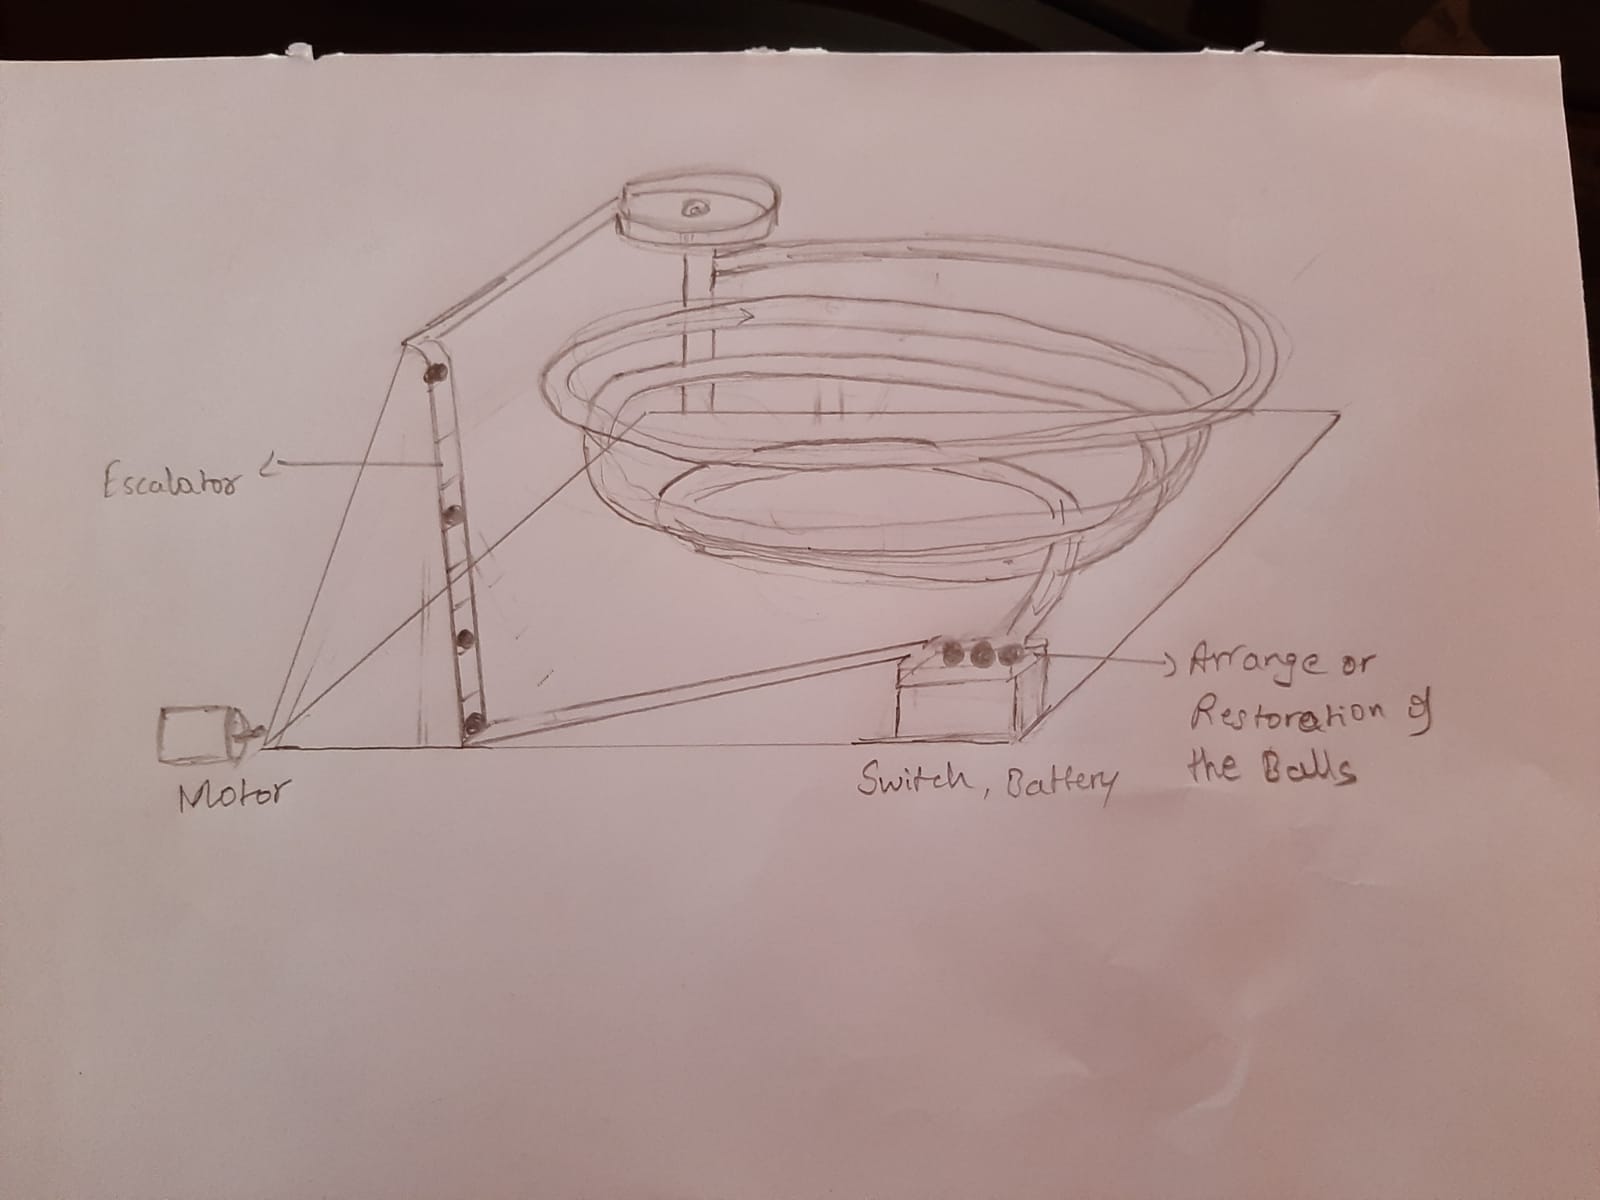 Escalator
Motor
Switch, Battery
Arrange or
Restoration of
the Balls